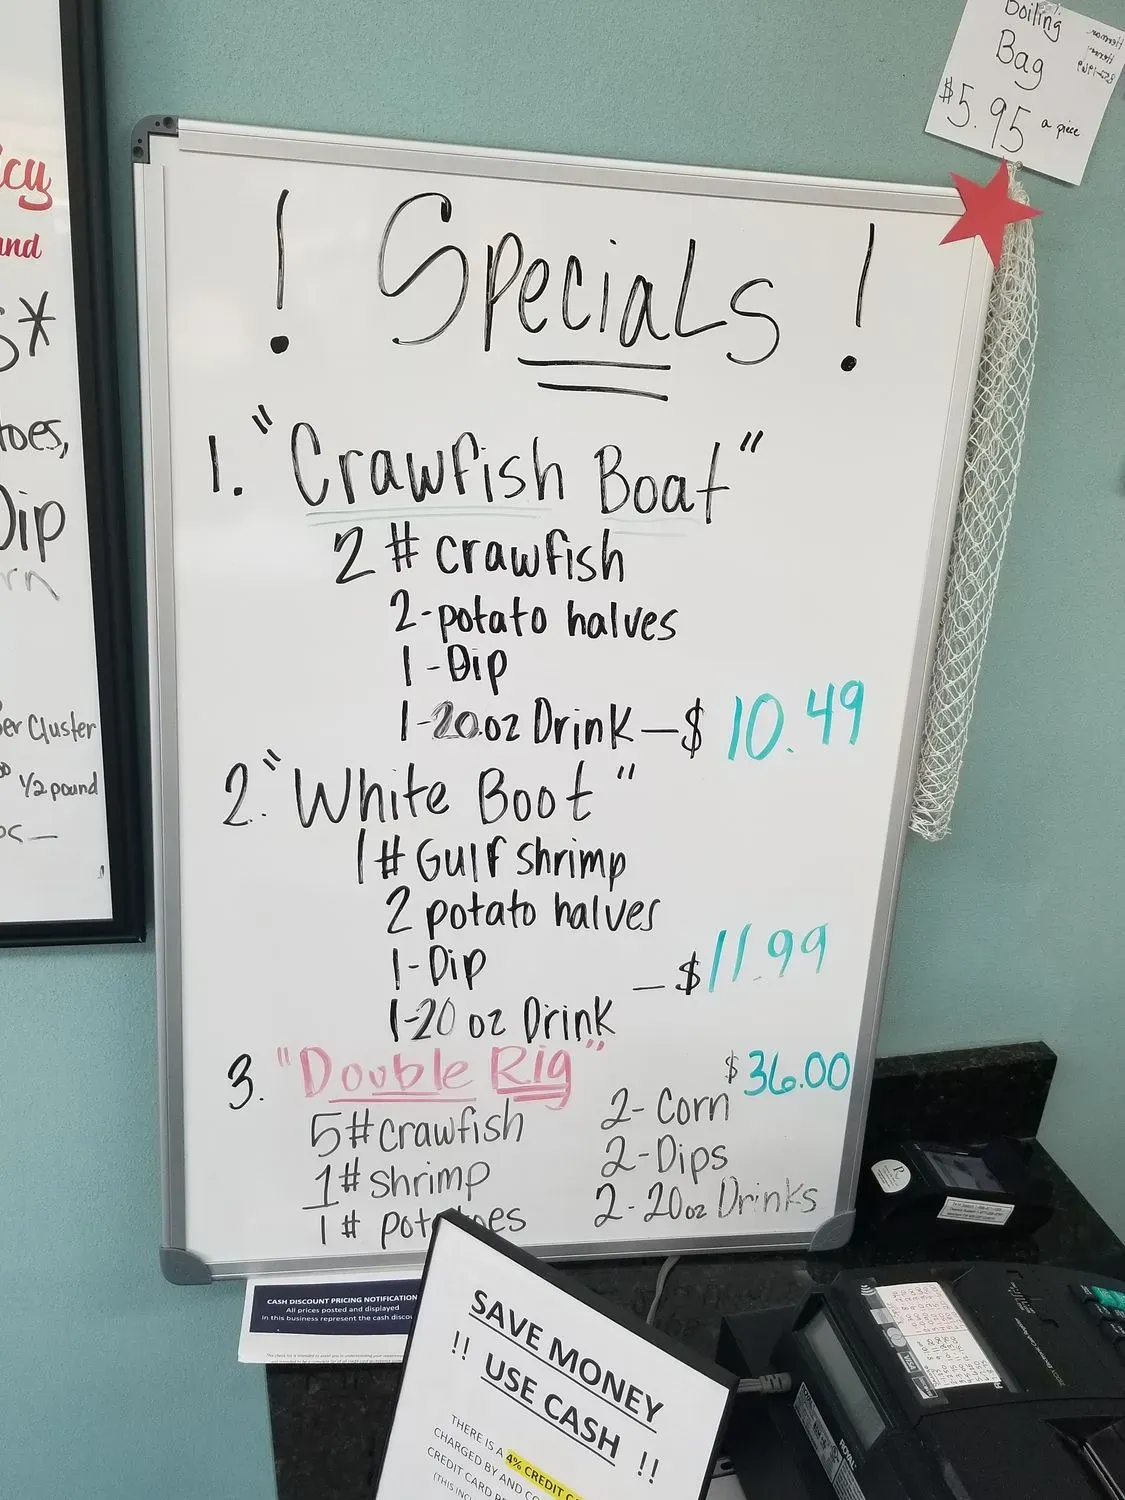 icy
and
s*
toes,
Dip
rn
per Cluster
1/2 pound
Boiling
Bag
$5.95 a piece
! Specials !
1. "Crawfish Boat"
2 # crawfish
2-potato halves
1-Dip
1-20 oz Drink — $ 10.49
2. "White Boot"
1# Gulf shrimp
2 potato halves
1-Dip — $11.99
1-20 oz Drink
3. "Double Rig" $36.00
5# crawfish 2- Corn
1# shrimp 2-Dips
1 # potatoes 2-20oz Drinks
CASH DISCOUNT PRICING NOTIFICATION
All prices posted and displayed
in this business represent the cash disco
SAVE MONEY
!! USE CASH !!
THERE IS A 4% CREDIT C
CHARGED BY AND CO
CREDIT CARD P
(THIS INC
ROYAL